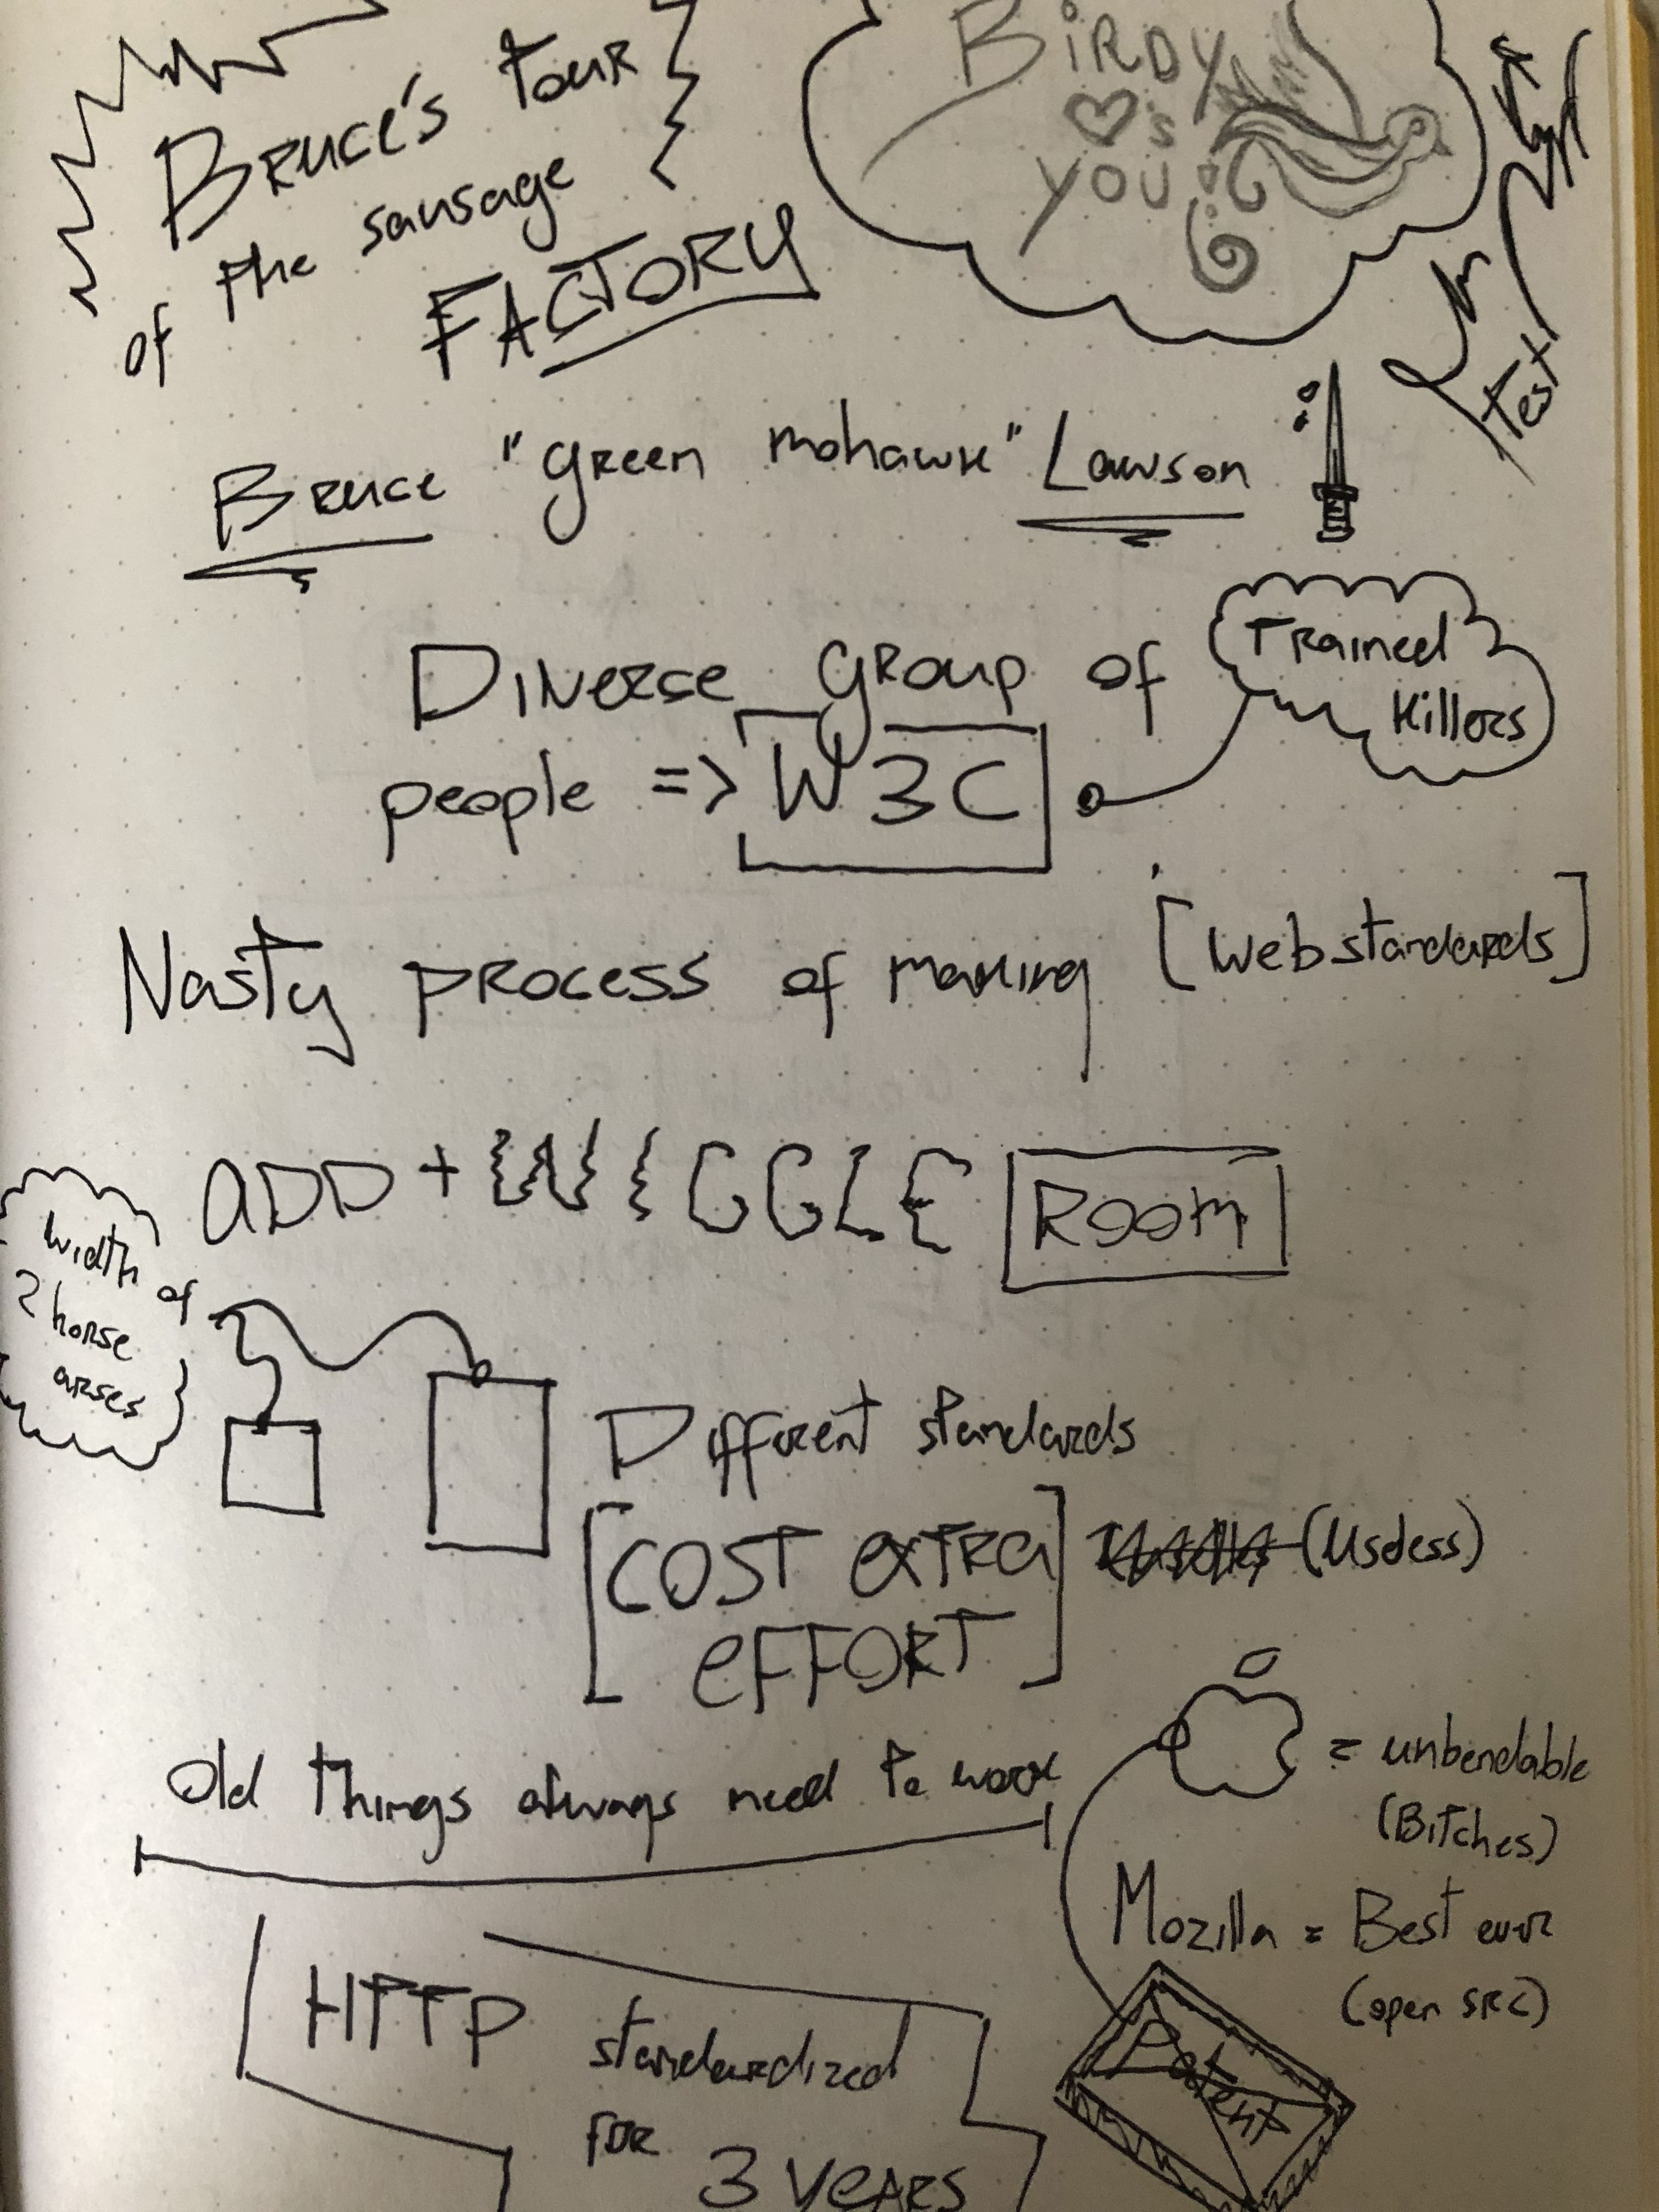 Bruce's tour
of the sausage
FACTORY
BiRDY
♥'s
YOU
Test
Bruce "green mohawk" Lawson
Diverse group of
people => W3C
Trained
Killers
Nasty process of making [webstandards]
ADD + WIGGLE ROOM
width of
2 horse
arses
Different standards
[COST EXTRA
EFFORT]
(Useless)
Old things always need to work
= unbendable
(Bitches)
Mozilla = Best ever
(open src)
Patent
HTTP standardized
FOR 3 YEARS